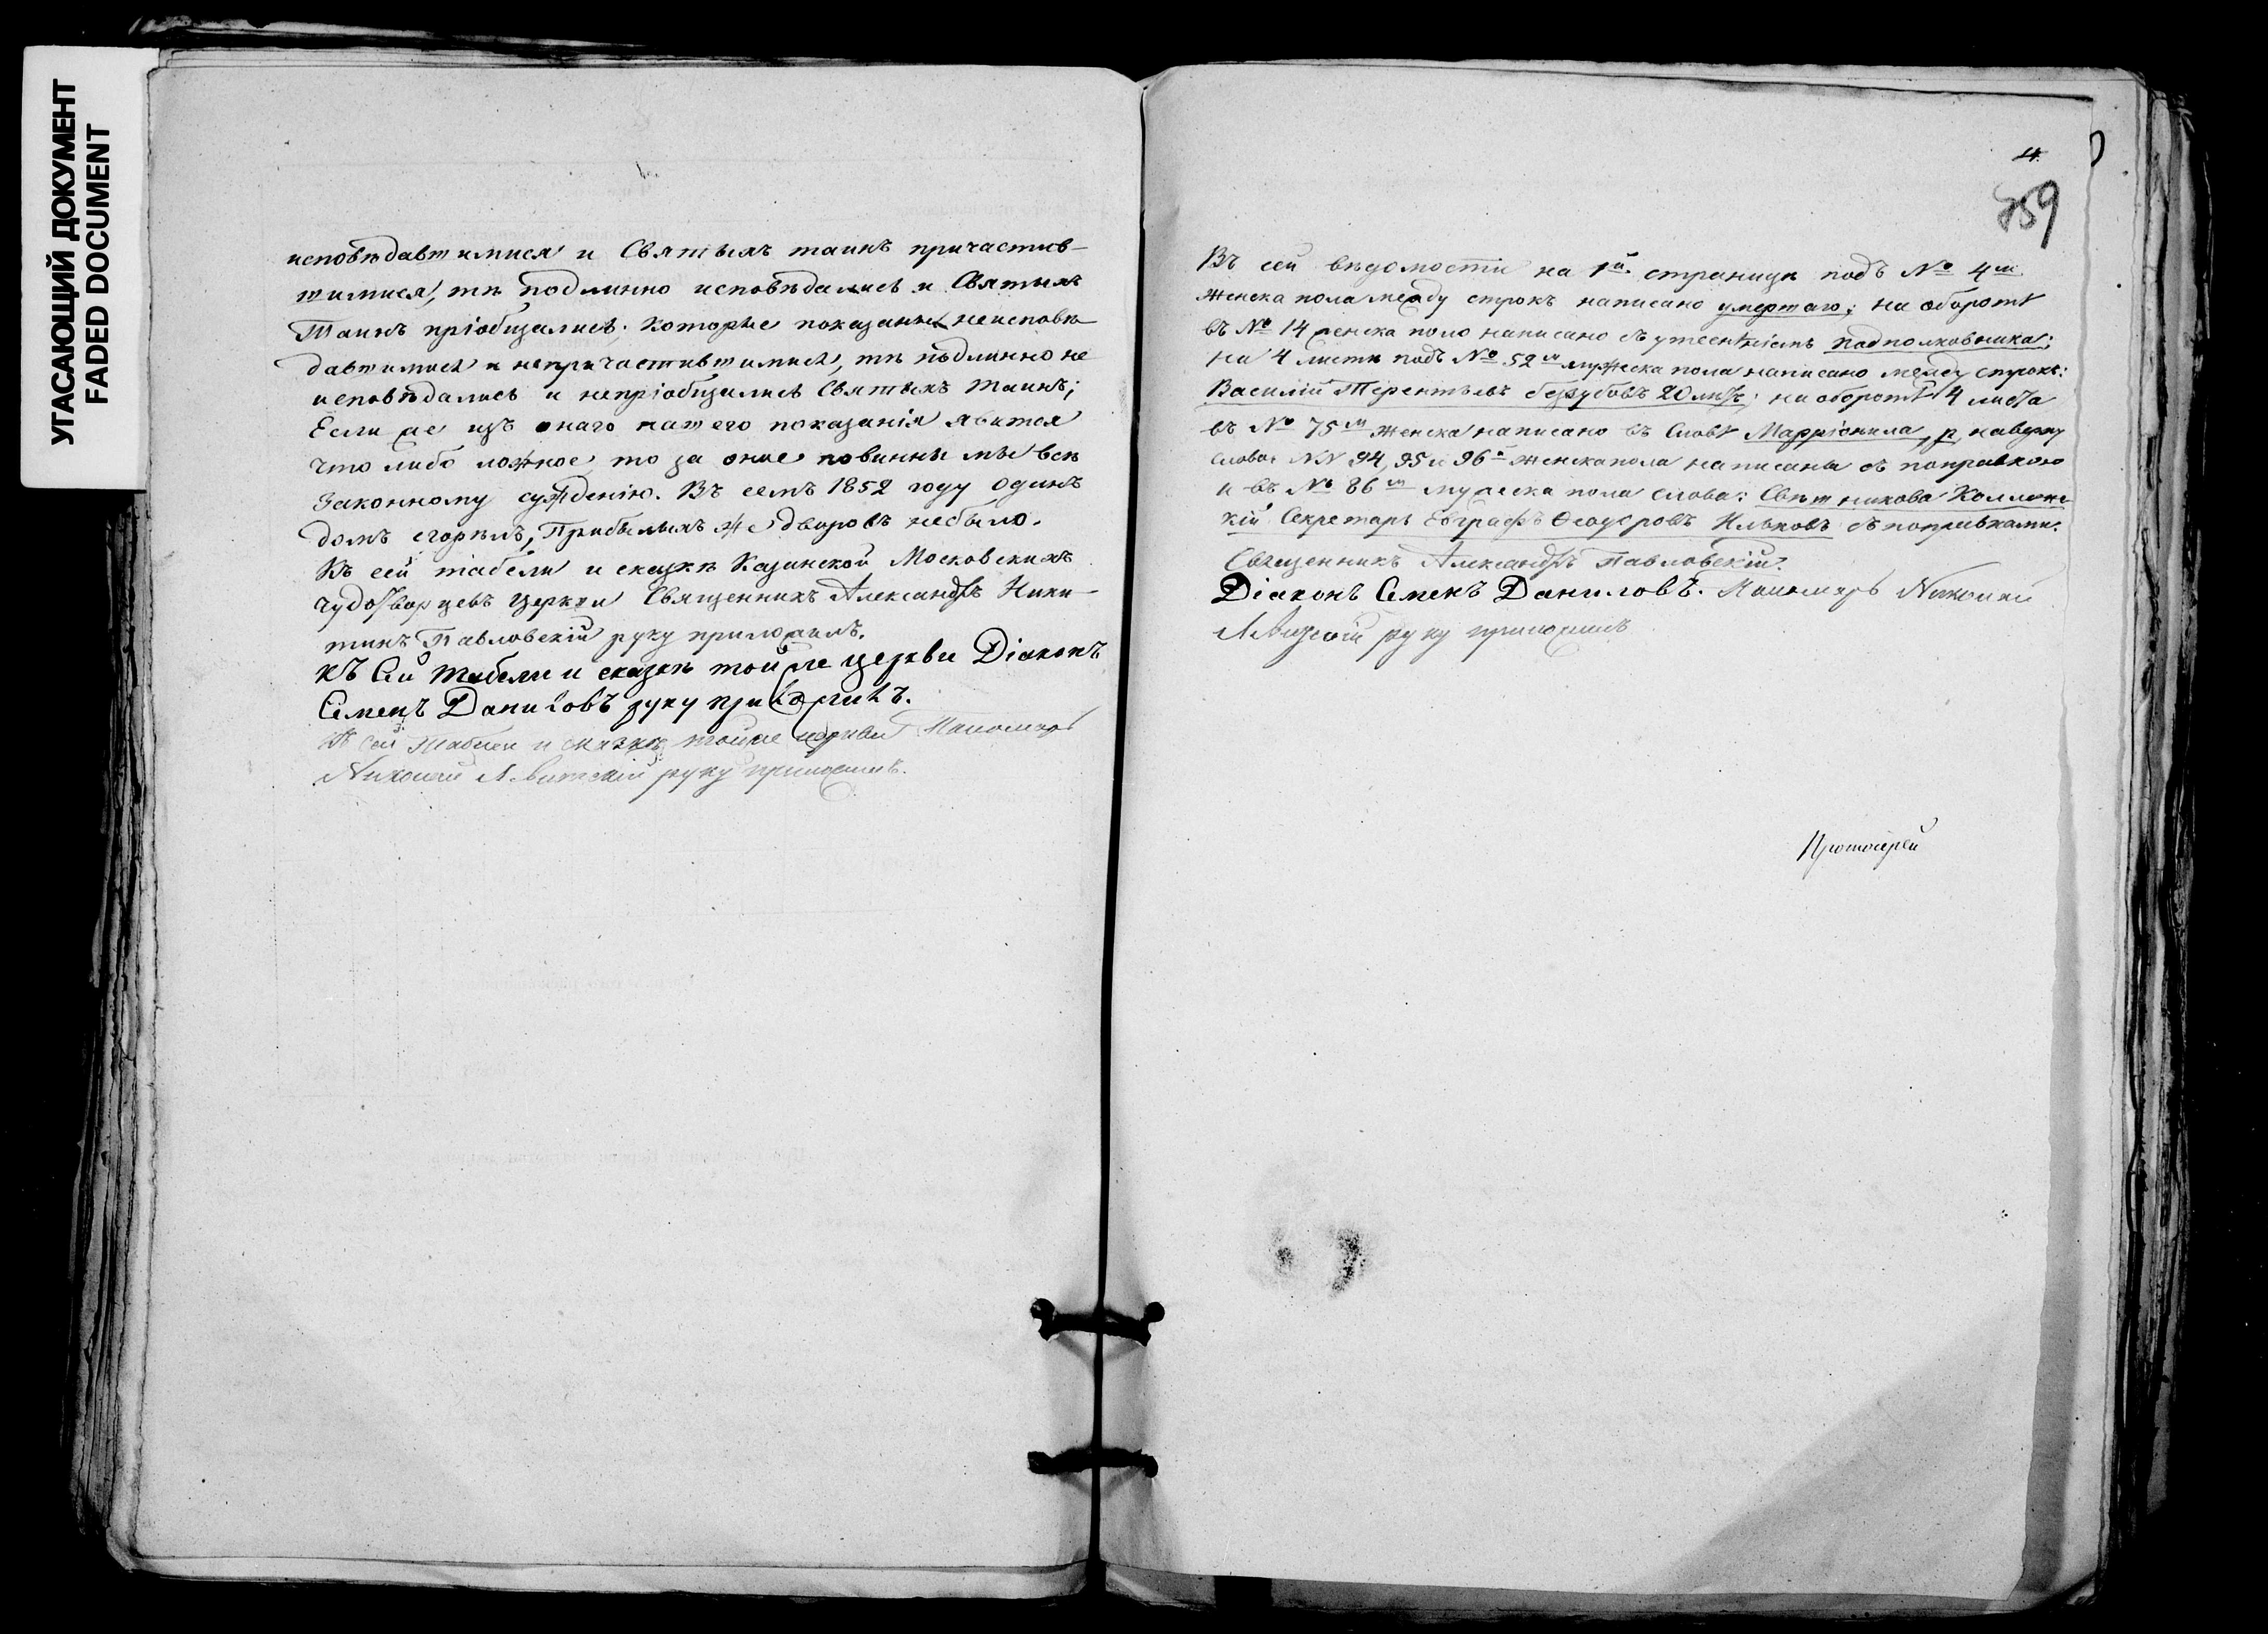 УГАСАЮЩИЙ ДОКУМЕНТ
FADED DOCUMENT
исповѣдавшимися и Святыхъ таинъ причастив-
шимися, тѣ подлинно исповѣдались и Святыхъ
Таинъ пріобщались; которые показаны неисповѣ-
давшимися и непричастившимися, тѣ подлинно не
исповѣдались и непріобщились Святыхъ Таинъ;
Если же изъ онаго нашего показанія явится
что либо ложное, то за оное повинны мы всѣ
Законному сужденію. Въ семъ 1852 году одинъ
домъ сгорѣлъ, Прибылыхъ же дворовъ небыло.
Къ сей табели и сказкѣ Казинской Московскихъ
чудотворцевъ церкви Священникъ Александръ Ники-
тинъ Павловскій руку приложилъ.
Къ Сей Табели и сказкѣ той же церкви Діаконъ
Семенъ Даниловъ руку приложилъ.
Къ сей Табели и сказкѣ тойже церкви Пономарь
Николай Левитскій руку приложилъ.
4
859
Въ сей вѣдомости на 1й страницѣ подъ № 4м
женска пола между строкъ написано умершаго; на оборотѣ
въ № 14 женска поло написано съ утесненіемъ Подполковника;
на 4 листѣ подъ № 52м мужеска пола написано между строкъ:
Василій Терентьевъ беззубовъ 20 лѣтъ; на оборотѣ 4 листа
въ № 75м женска написано въ Словѣ Марріонила, р, наверху
слова; NN 94, 95 и 96й женска пола написаны съ поправкою
и въ № 86м мужеска пола слова: Свѣтникова Коллеж-
кій Секретарь Евграфъ Ѳеодоровъ Ильковъ съ поправками.
Священникъ Александръ Павловскій.
Діаконъ Семенъ Даниловъ. Пономарь Николай
Левитскій руку приложилъ
Протоіерей